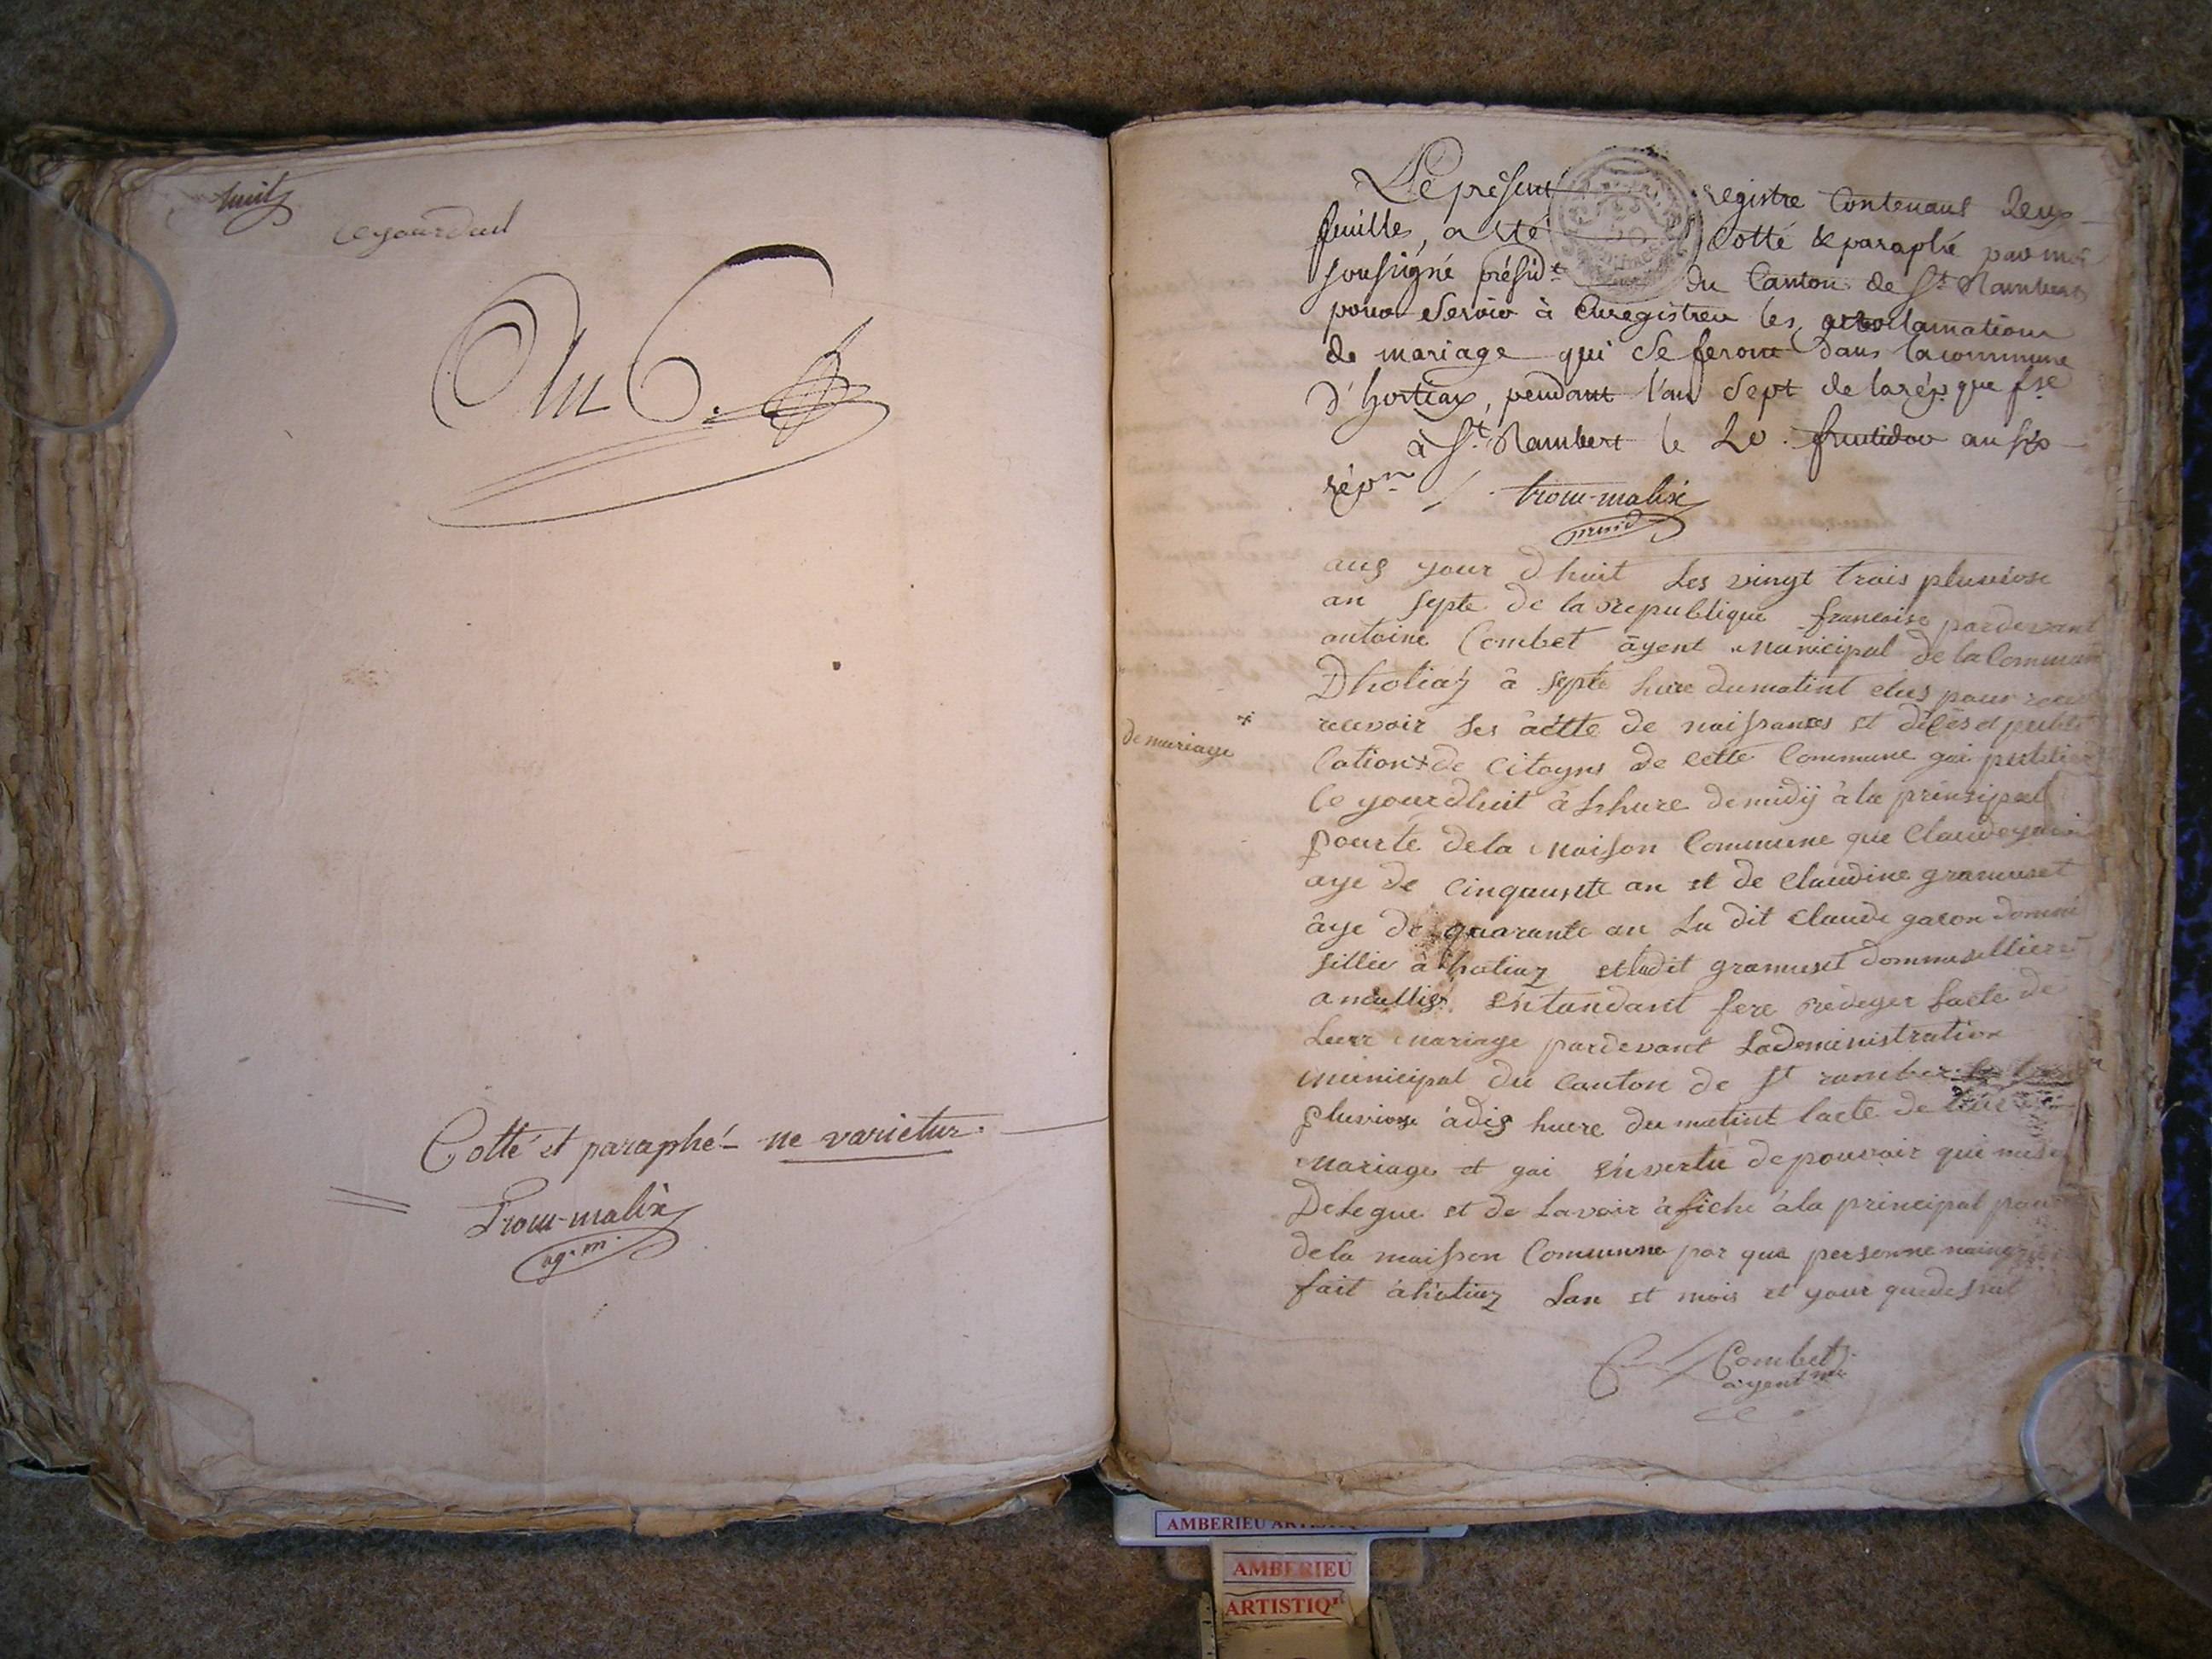 huit
ce yourduit
Cotté et paraphé ne varietur.
Trou-malix
ag. m.
Le présent registre Contenant deux
feuille, a été Cotté & paraphé par moi
sousigné présidt du Canton de St Rambert
pour servir à Enregistrer les proclamations
de mariage qui se feront dans la commune
d'hostiax, pendant l'an Sept de la rép.que fse
à St Rambert le 20 fructidor an six
répn
trou-malix
presid
auj your dhuit Les vingt trois pluviose
an septe de la republique francaise pardevant
antoine Combet âyent municipal de la Commune
Dhotiaz à septe hure du matint elus pour
recevoir les àctte de naissances et décés et publi
de mariage
Cation de Citoyns de cette Commune gai publier
Ce yourdhuit à hure de midij à la prinsipal
pourte de la maison Commune que Claude
aye de Cinquante an et de Claudine gramuset
âye de quarante an Lu dit Claude gacon dommi
sillie à hotiaz et ludit gramuset dommiselliere
entandant fere rédeger lacte de
Leur mariage pardevant Ladministration
municipal du Canton de St ramber
pluviose à dis huere du matint lacte de leur
mariage et gai en vertu de pouvoir qui
Delegue et de Lavoir afiche à la principal
de la maison Commune par que personne
fait à hotiaz Lan et mois et your que desut
Combet
ayent mu
AMBERIEU
AMBERIEU
ARTISTIQ